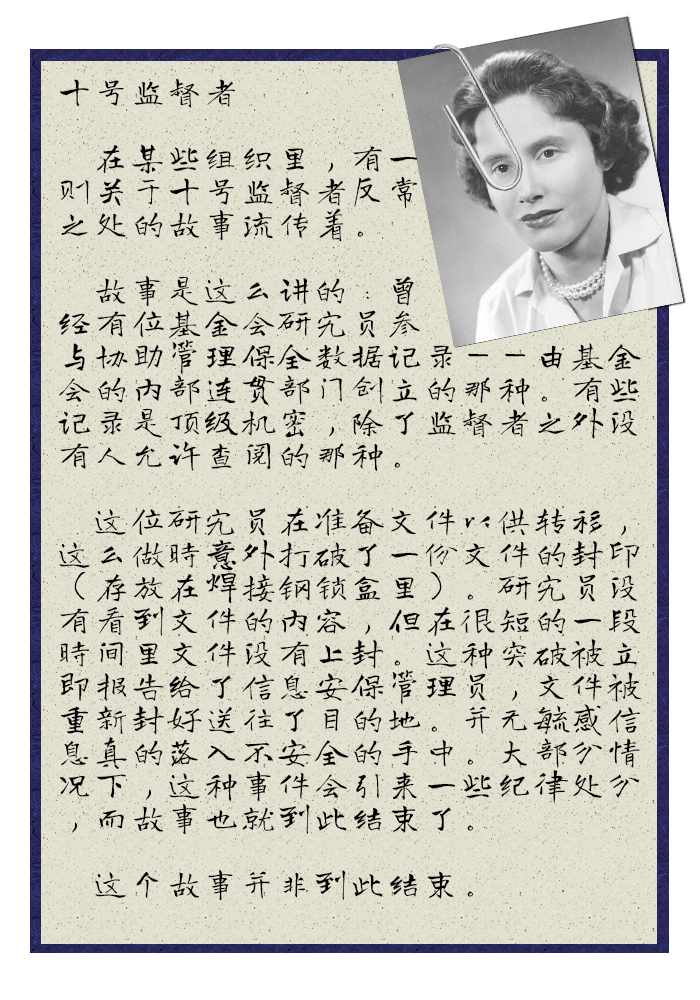 十号监督者
在某些组织里，有一
则关于十号监督者反常
之处的故事流传着。
故事是这么讲的：曾
经有位基金会研究员参
与协助管理保全数据记录——由基金
会的内部连贯部门创立的那种。有些
记录是顶级机密，除了监督者之外没
有人允许查阅的那种。
这位研究员在准备文件以供转移，
这么做時意外打破了一份文件的封印
（存放在焊接钢锁盒里）。研究员没
有看到文件的内容，但在很短的一段
時间里文件没有上封。这种突破被立
即报告给了信息安保管理员，文件被
重新封好送往了目的地。并无敏感信
息真的落入不安全的手中。大部分情
况下，这种事件会引来一些纪律处分
，而故事也就到此结束了。
这个故事并非到此结束。